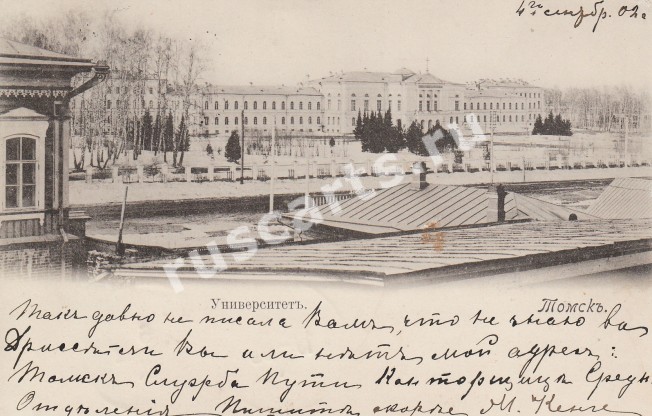 4го сентбр. 02 г
ruscarts.ru
Университетъ.
Томскъ.
Такъ давно не писала Вамъ, что не знаю въ
Вы или нѣтъ мой адресъ:
Томскъ Служба Пути Конторщица Средн.
Отдѣленія Пишите скорѣе М.